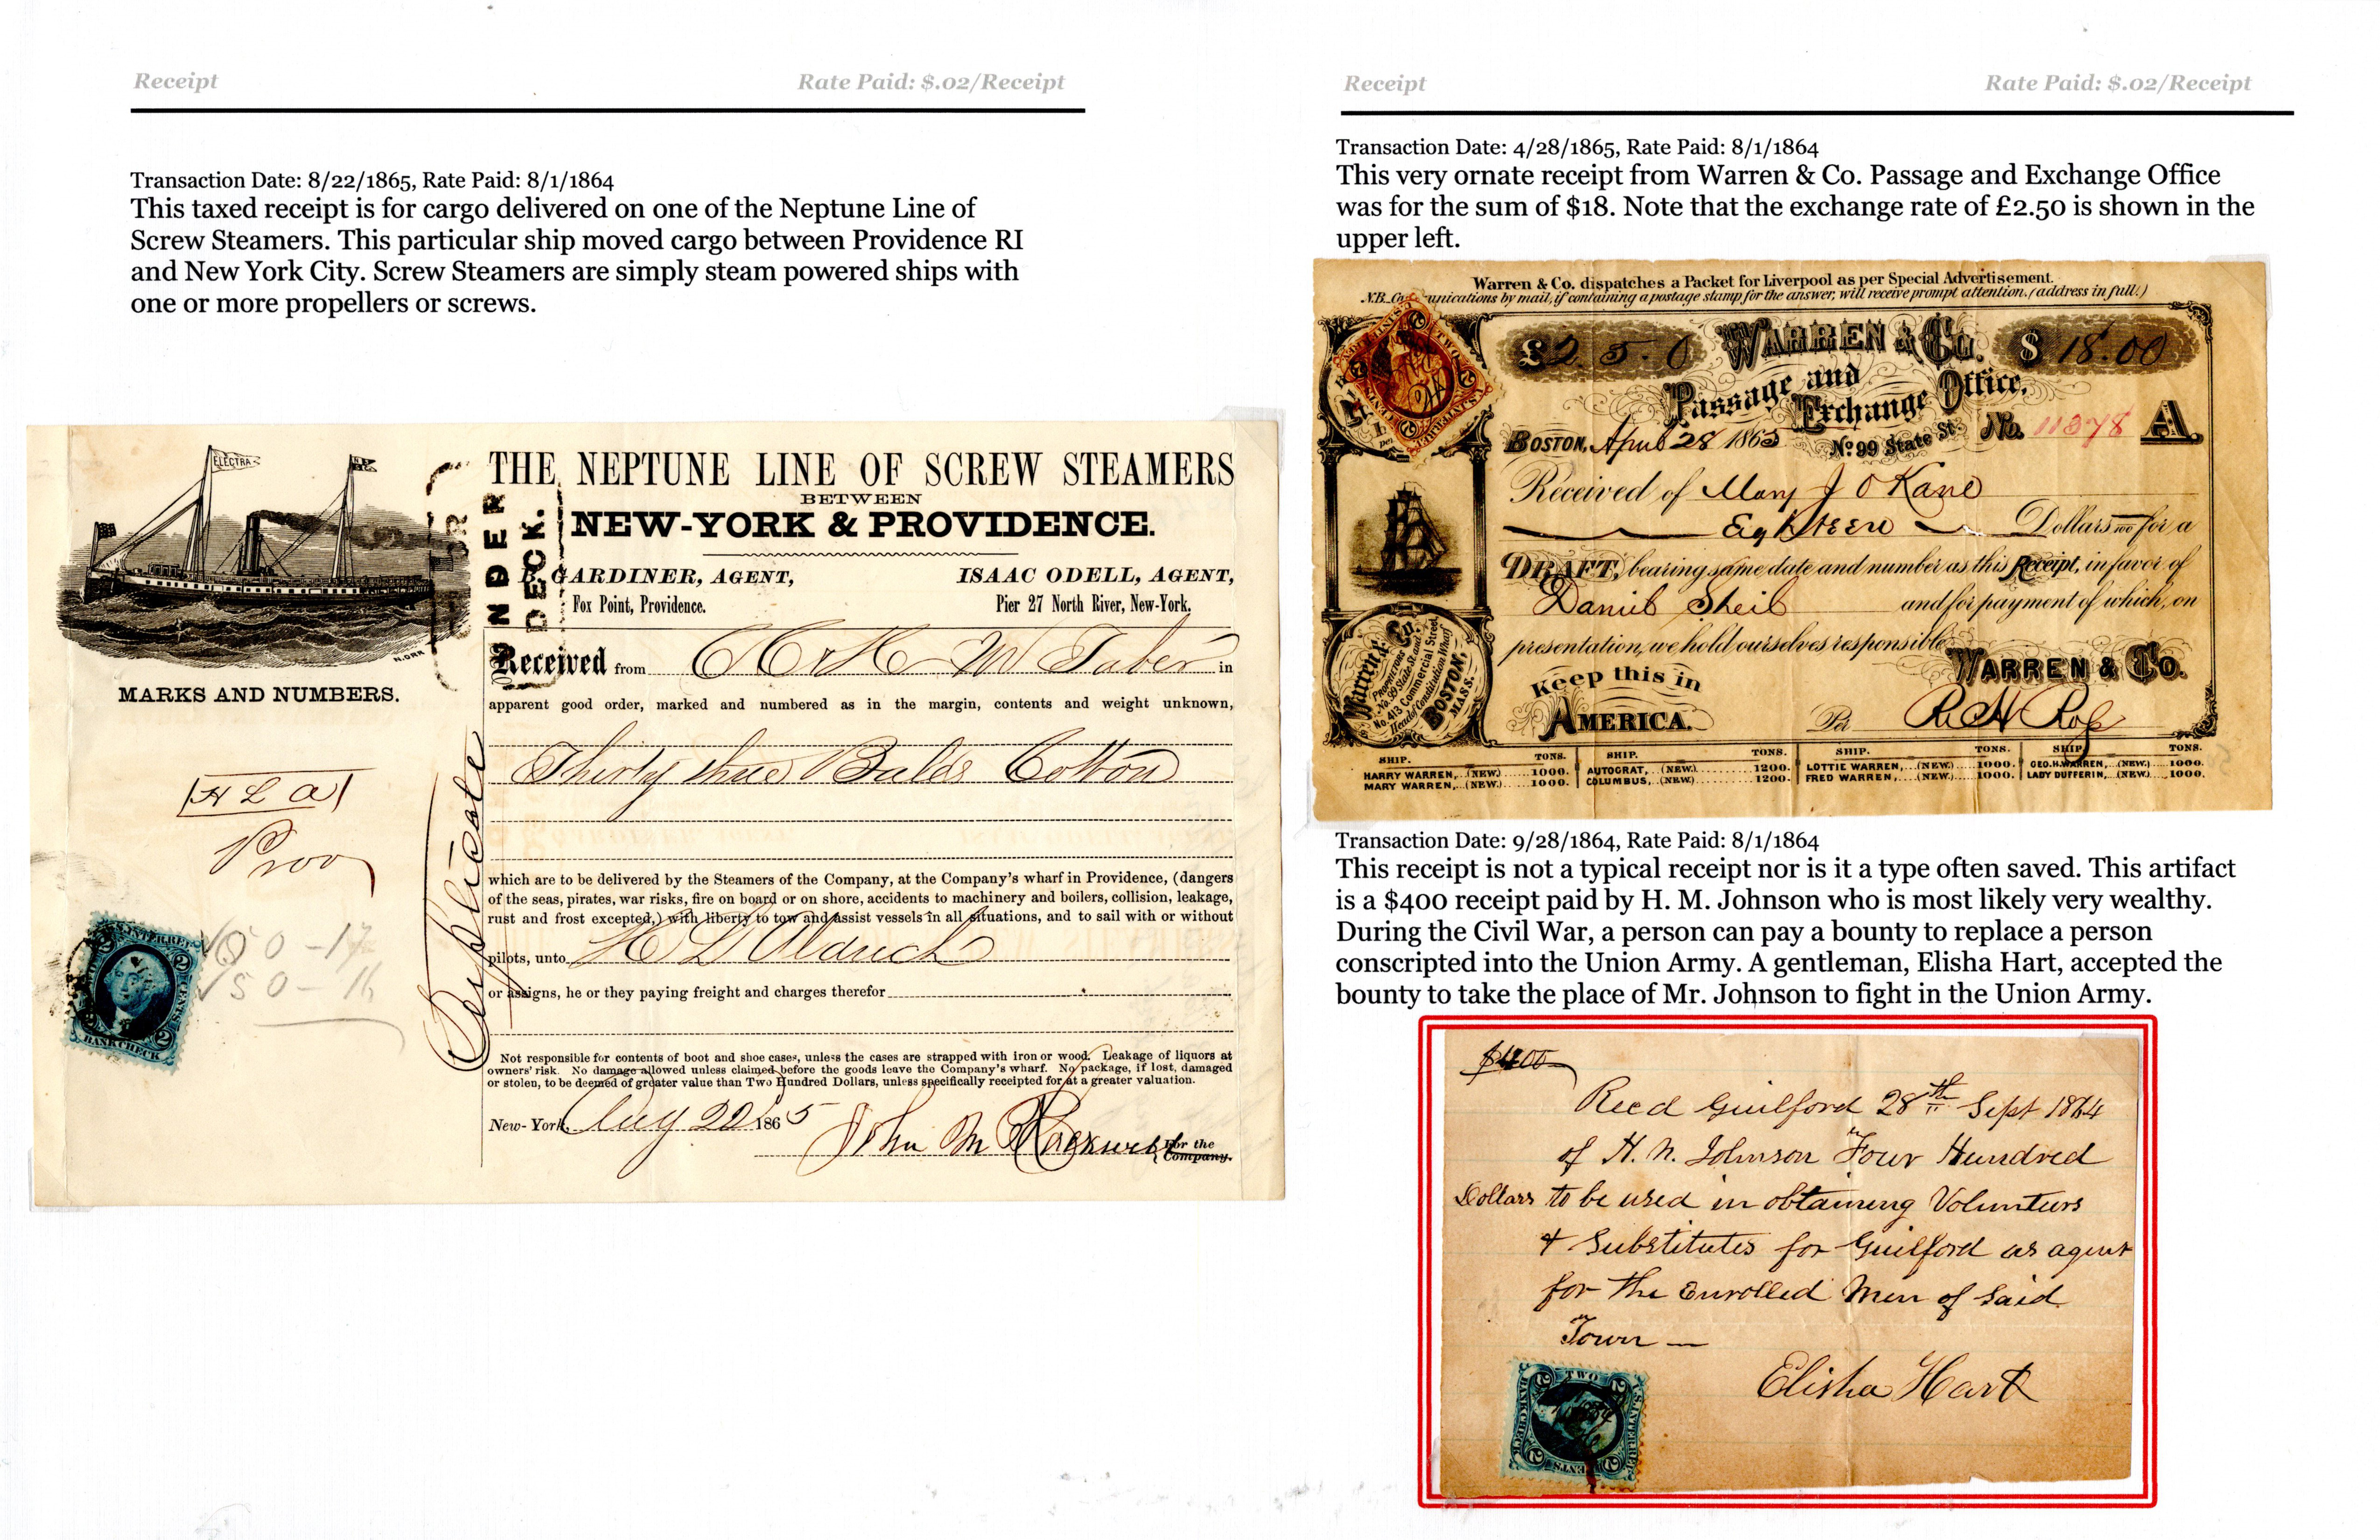 Receipt
Rate Paid: $.02/Receipt
Transaction Date: 8/22/1865, Rate Paid: 8/1/1864
This taxed receipt is for cargo delivered on one of the Neptune Line of
Screw Steamers. This particular ship moved cargo between Providence RI
and New York City. Screw Steamers are simply steam powered ships with
one or more propellers or screws.
ELECTRA
N.ORR
MARKS AND NUMBERS.
H L A
Prov
50-17
50-16
U.S. INTER. REV.
2 CENTS 2
BANK CHECK
UNDER
DECK.
Duplicate
THE NEPTUNE LINE OF SCREW STEAMERS
BETWEEN
NEW-YORK & PROVIDENCE.
GARDINER, AGENT,
Fox Point, Providence.
ISAAC ODELL, AGENT,
Pier 27 North River, New-York.
Received from W Taber in
apparent good order, marked and numbered as in the margin, contents and weight unknown,
Thirty three Bales Cotton
which are to be delivered by the Steamers of the Company, at the Company's wharf in Providence, (dangers
of the seas, pirates, war risks, fire on board or on shore, accidents to machinery and boilers, collision, leakage,
rust and frost excepted,) with liberty to tow and assist vessels in all situations, and to sail with or without
pilots, unto H L Aldrich
or assigns, he or they paying freight and charges therefor
Not responsible for contents of boot and shoe cases, unless the cases are strapped with iron or wood. Leakage of liquors at
owners' risk. No damage allowed unless claimed before the goods leave the Company's wharf. No package, if lost, damaged
or stolen, to be deemed of greater value than Two Hundred Dollars, unless specifically receipted for at a greater valuation.
New-York, Aug 22 1865
John M For the
Company.
Receipt
Rate Paid: $.02/Receipt
Transaction Date: 4/28/1865, Rate Paid: 8/1/1864
This very ornate receipt from Warren & Co. Passage and Exchange Office
was for the sum of $18. Note that the exchange rate of £2.50 is shown in the
upper left.
Warren & Co. dispatches a Packet for Liverpool as per Special Advertisement.
N.B. Communications by mail, if containing a postage stamp for the answer, will receive prompt attention. (address in full.)
£2.5.0 WARREN & Co. $18.00
Passage and
Exchange Office,
BOSTON, April 28 1865 No. 99 State St. No. 11378 A.
Received of Mary J O Kane
Eighteen Dollars for a
DRAFT, bearing same date and number as this Receipt, in favor of
Daniel Sheil and for payment of which, on
presentation, we hold ourselves responsible
Warren & Co.
PROPRIETORS
No. 99 State St. and
No. 413 Commercial Street
Head of Constitution Wharf
BOSTON,
MASS.
Keep this in
AMERICA.
WARREN & Co.
Per
SHIP. TONS. SHIP. TONS. SHIP. TONS. SHIP. TONS.
HARRY WARREN, (NEW.) 1000. AUTOGRAT, (NEW.) 1200. LOTTIE WARREN, (NEW.) 1000. GEO.H.WARREN, (NEW.) 1000.
MARY WARREN, (NEW.) 1000. COLUMBUS, (NEW.) 1200. FRED WARREN, (NEW.) 1000. LADY DUFFERIN, (NEW.) 1000.
Transaction Date: 9/28/1864, Rate Paid: 8/1/1864
This receipt is not a typical receipt nor is it a type often saved. This artifact
is a $400 receipt paid by H. M. Johnson who is most likely very wealthy.
During the Civil War, a person can pay a bounty to replace a person
conscripted into the Union Army. A gentleman, Elisha Hart, accepted the
bounty to take the place of Mr. Johnson to fight in the Union Army.
$400
Recd Guilford 28th Sept 1864
of H. N. Johnson Four Hundred
Dollars to be used in obtaining Volunteers
& Substitutes for Guilford as agent
for the Enrolled Men of Said
Town —
Elisha Hart
TWO
U.S. INTER. REV.
BANK CHECK
CENTS